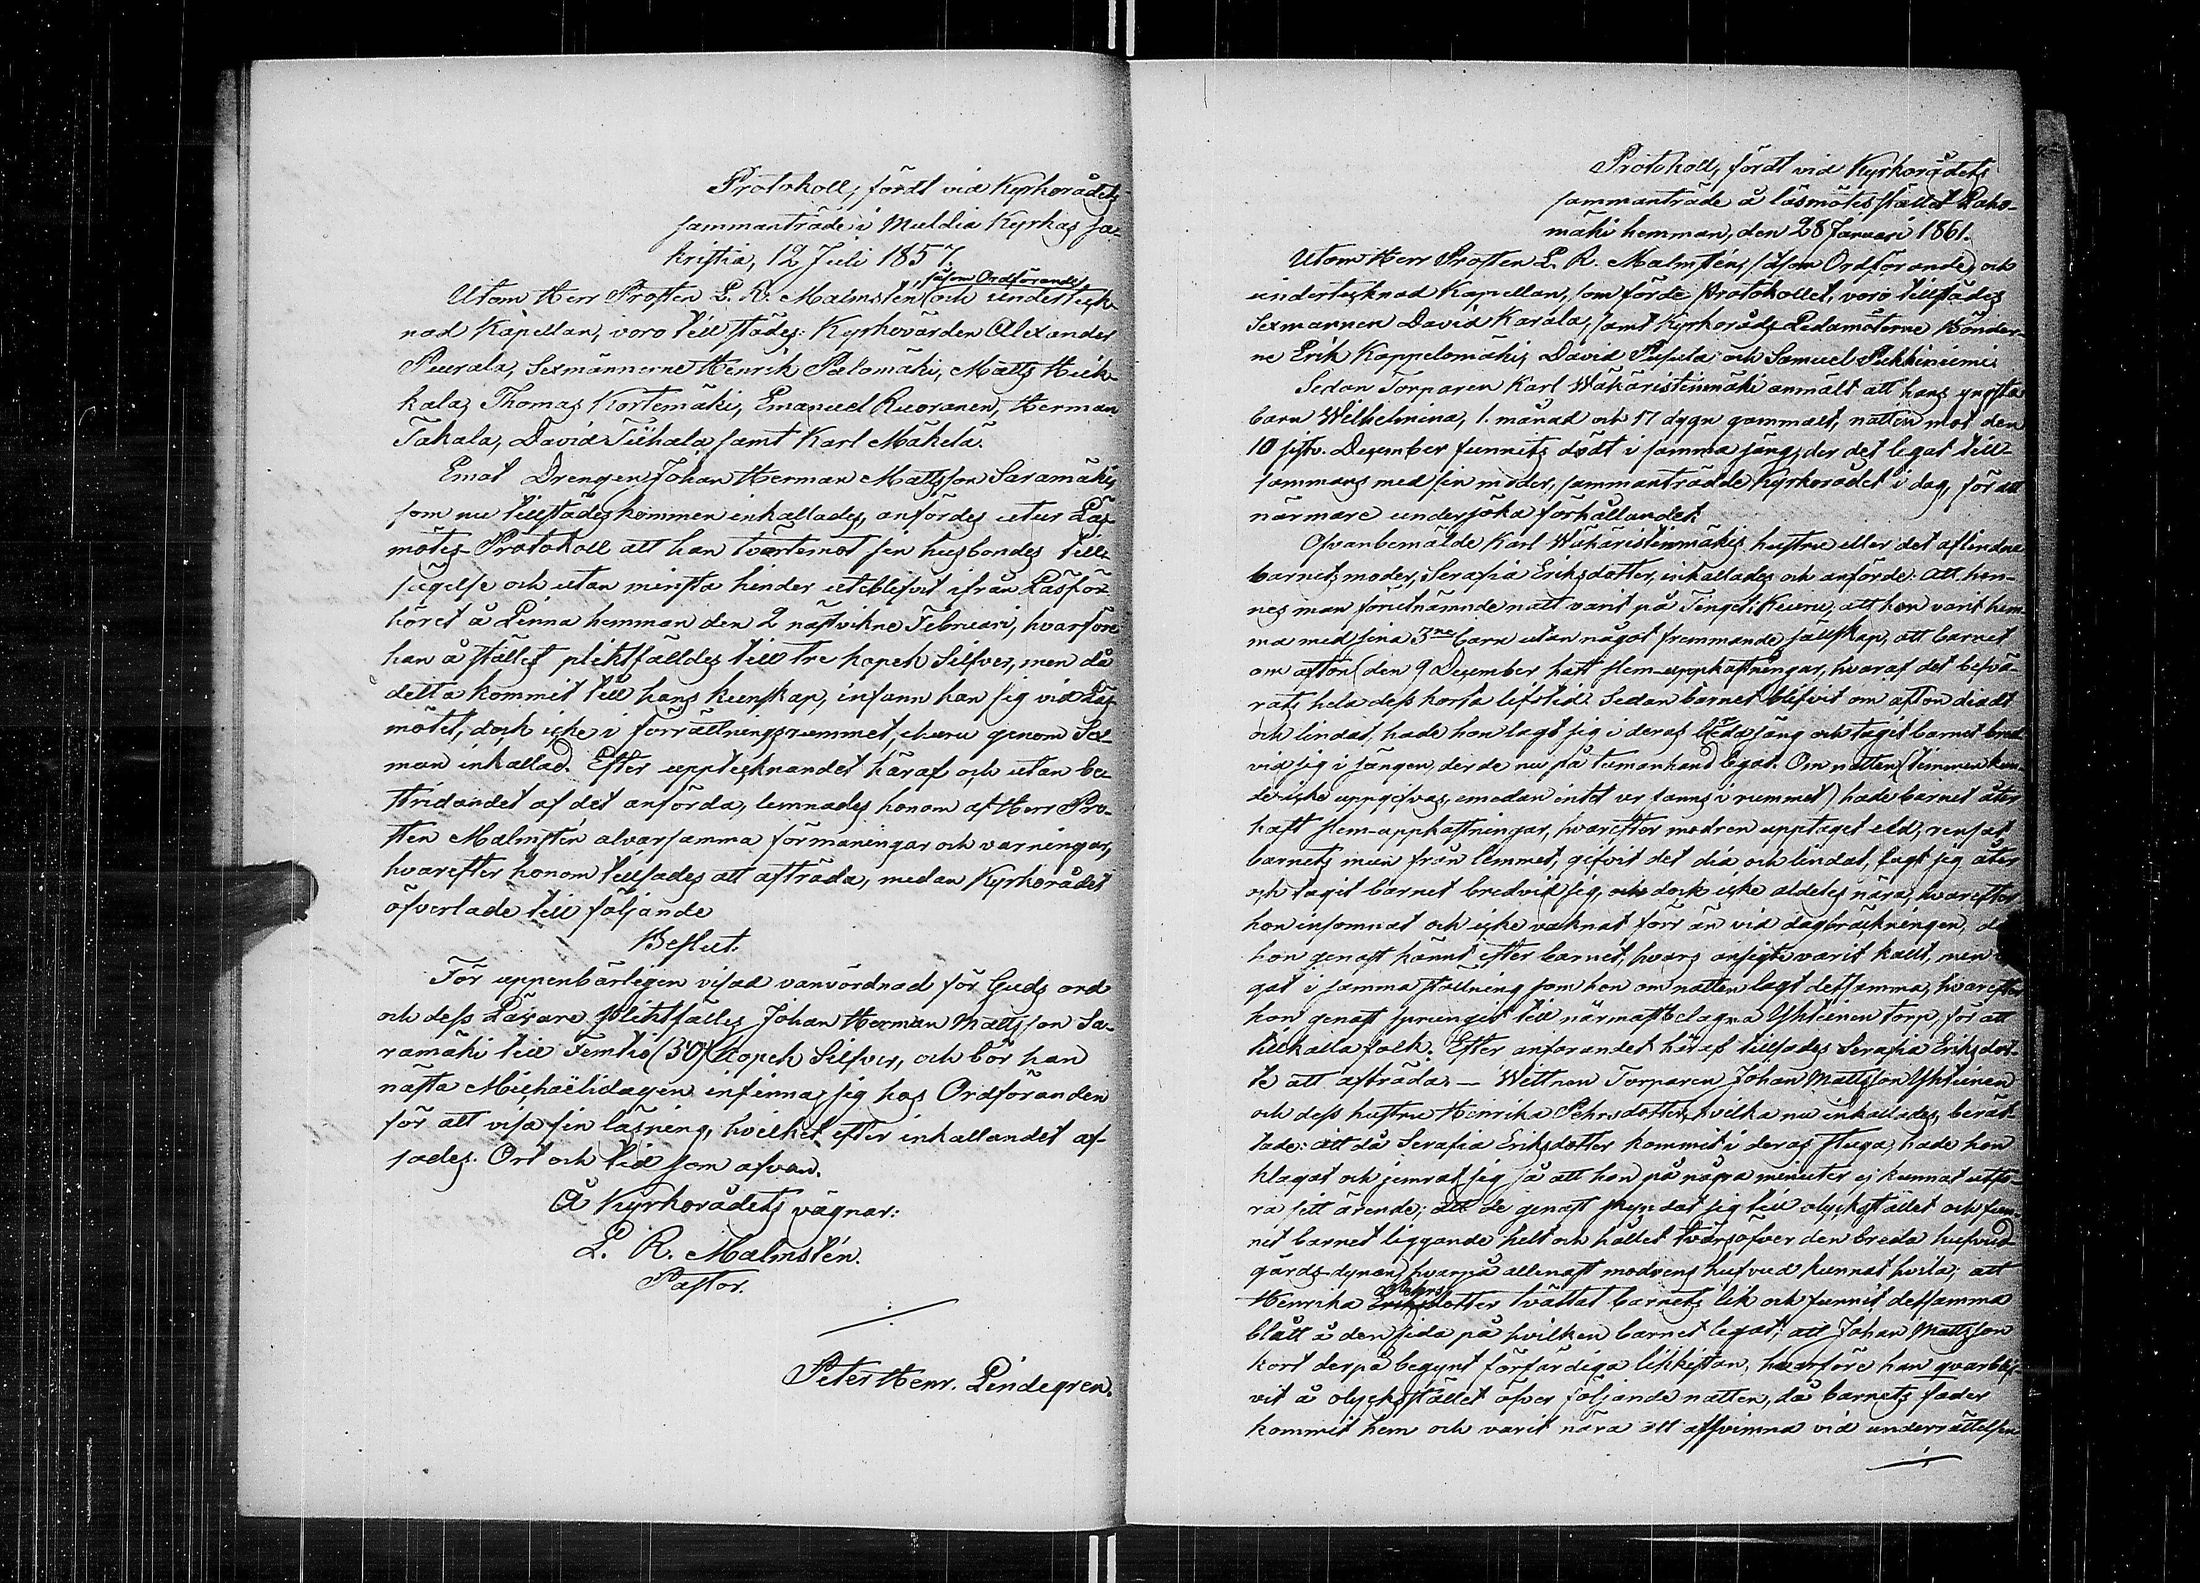 Protokoll, fördt vid Kyrkorådets
sammanträde i Muldia Kyrkas sa-
kristia, 12 Juli 1857.
Utom Herr Prosten L. R. Malmstén, såsom Ordförande, och underteck-
nad Kapellan, voro tillstädes: Kyrkovärden Alexander
Puurala, Sexmännerne Henrik Palomäki, Matts Huk-
kala, Thomas Kortemäki, Emanuel Ruoranen, Herman
Takala, David Tiihala, samt Karl Mäkelä.
Emot Drengen Johan Herman Mattsson Saramäki,
som nu tillstädes kommen inkallades, anfördes utur Läs-
mötes-Protokoll att han tvärtemot sin husbondes till-
sägelse och utan minsta hinder uteblifvit ifrån Läsför-
höret å Pinna hemman den 2 nästvikne Februari, hvarföre
han å stället pliktfälldes till tre kopek Silfver, men då
detta kommit till hans kunskap, infann han sig vid Läs-
mötet, dock icke i förrättningsrummet, churu genom Sex-
man inkallad. Efter upptecknandet häraf och utan be-
stridandet af det anförda, lemnades honom af Herr Pro-
sten Malmstén alvarsamma förmaningar och varningar,
hvarefter honom tillsades att afträda, medan Kyrkorådet
öfverlade till följande
Beslut:
För uppenbarligen visad vanvördnad för Guds ord
och dess Lärare pliktfälles Johan Herman Mattsson Sa-
ramäki till femtio (50) kopek Silfver, och bör han
nästa Michaëlidagen infinna sig hos Ordföranden
för att visa sin läsning, hvilket efter inkallandet af-
sades. Ort och tid som ofvan.
Å Kyrkorådets vägnar:
L. R. Malmstén.
Pastor.
Peter Henr. Lindegren.
Protokoll, fördt vid Kyrkorådets
sammanträde å läsmötesstället Paho-
mäki hemman, den 28 Januari 1861.
Utom Herr Prosten L. R. Malmstén, såsom Ordförande, och
undertecknad Kapellan, som förde Protokollet, voro tillstädes
Sexmannen David Karala, samt Kyrkoråds Ledamöterne Bönder-
ne Erik Kappelomäki, David Pusula och Samuel Pukkiniemi.
Sedan Torparen Karl Wäkäristeinmäki anmält att hans yngsta
barn Wilhelmina, 1. månad och 17 dygn gammalt, natten mot den
10 sistv. December funnits dödt i samma säng, der det legat till-
sammans med sin moder, sammanträdde Kyrkorådet i dag, för att
närmare undersöka förhållandet.
Ofvanbemälde Karl Wäkäristeinmäkis hustru eller det aflidna
barnets moder, Serafia Eriksdotter, inkallades och anförde: att hen-
nes man förutnämnde natt varit på Tinget i Keuru, att hon varit hem-
ma med sina 3ne barn utan något fremmande sällskap, att barnet
om afton (den 9 December haft slem-uppkastningar, hvaraf det besvä-
rats hela dess korta lifstid. Sedan barnet blifvit om afton diadt
och lindat, hade hon lagt sig i deras breda säng och tagit barnet bred-
vid sig i sängen, der de nu på tumanhand legat. Om natten (timmen kun-
de icke uppgifvas, emedan intet ur fanns i rummet) hade barnet åter
haft slem-uppkastningar, hvarefter modren upptaget eld, rensat
barnets mun från slemmet, gifvit det dia och lindat, lagt sig åter
och tagit barnet bredvid sig, och dock icke aldeles nära, hvarefter
hon insomnat och icke vaknat förr än vid dagbräckningen, då
hon genast kännt efter barnet, hvars ansigte varit kallt, men
gat i samma ställning som hon om natten lagt detsamma, hvarefter
hon genast sprungit till närmast belagna Yhteinen torp, för att
tillkalla folk. Efter anförandet häraf tillsades Serafia Eriksdot-
te att afträda. — Wittnen Torparen Johan Mattsson Yhteinen
och dess hustru Henrika Pehrsdotter, hvilka nu inkallades, berät-
tade: att då Serafia Eriksdotter kommit i deras stuga, hade hon
klagat och jemrat sig så att hon på några minuter ej kunnat utfö-
ra sitt ärende; att de genast skyndat sig till olycksstället och fun-
nit barnet liggande helt och hållet tvärsöfver den breda hufvud-
gärds-dynan, hvarpå allenast modrens hufvud kunnat hvila; att
Henrika Pehrsdotter tvättat barnets lik och funnit detsamma
blått å den sida på hvilken barnet legat; att Johan Mattsson
kort derpå begynt förfärdiga likkistan, hvarföre han qvarblif-
vit å olycksstället öfver följande natten, då barnets fader
kommit hem och varit nära att afsvimna vid underrättelsen